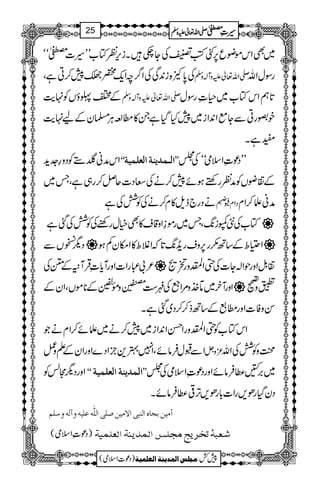 سیرتِ مصطفیٰ صلی اللہ تعالیٰ علیہ وسلم 25
میں بھی اس موضوع پر کئی کتب تصنیف کی جا چکی ہیں۔ زیرِ نظر کتاب ’’سیرتِ مصطفیٰ‘‘
رسول اللہ صلی اللہ تعالیٰ علیہ وآلہ وسلم کی پاکیزہ زندگی کی اگرچہ ایک مختصر جھلک پیش کرتی ہے،
تاہم اس کتاب میں حیاتِ رسول صلی اللہ تعالیٰ علیہ وآلہ وسلم کے مختلف پہلوؤں کو نہایت
خوبصورتی سے جامع انداز میں پیش کیا گیا ہے جن کا مطالعہ ہر مسلمان کے لیے نہایت
مفید ہے۔
’’دعوتِ اسلامی‘‘ کی مجلس ’’المدینۃ العلمیۃ‘‘ اس مدنی گلدستے کو دورِ جدید
کے تقاضوں کو مدنظر رکھتے ہوئے پیش کرنے کی سعادت حاصل کر رہی ہے، جس میں
مدنی علمائے کرام دامت فیوضہم نے درج ذیل کام کرنے کی کوشش کی ہے
کتاب کی نئی کمپوزنگ، جس میں رموزِ اوقاف کا بھی خیال رکھنے کی کوشش کی گئی ہے
احتیاط کے ساتھ مکرر پروف ریڈنگ تاکہ اغلاط کا امکان کم ہو دیگر نسخوں سے
تقابل اور حوالہ جات کی حتی المقدور تخریج عربی عبارات اور آیاتِ قرآنیہ کے متن کی
تطبیق و تصحیح اور آخر میں مآخذ و مراجع کی فہرست مصنفین و مؤلفین کے ناموں، ان کے
سنِ وفات اور مطابع کے ساتھ ذکر کردی گئی ہے۔
اس کتاب کو حتی المقدور احسن انداز میں پیش کرنے میں علمائے کرام نے جو
محنت و کوشش کی اللہ عزوجل اسے قبول فرمائے، انہیں بہترین جزا دے اور ان کے علم و عمل
میں برکتیں عطا فرمائے اور دعوتِ اسلامی کی مجلس ’’المدینۃ العلمیۃ‘‘ اور دیگر مجالس کو
دن گیارہویں رات بارہویں ترقی عطا فرمائے۔
آمین بجاہ النبی الامین صلی اللہ علیہ وآلہ وسلم
شعبۂ تخریج مجلس المدینۃ العلمیۃ (دعوتِ اسلامی)
پیش کش: مجلس المدینۃ العلمیۃ (دعوتِ اسلامی)